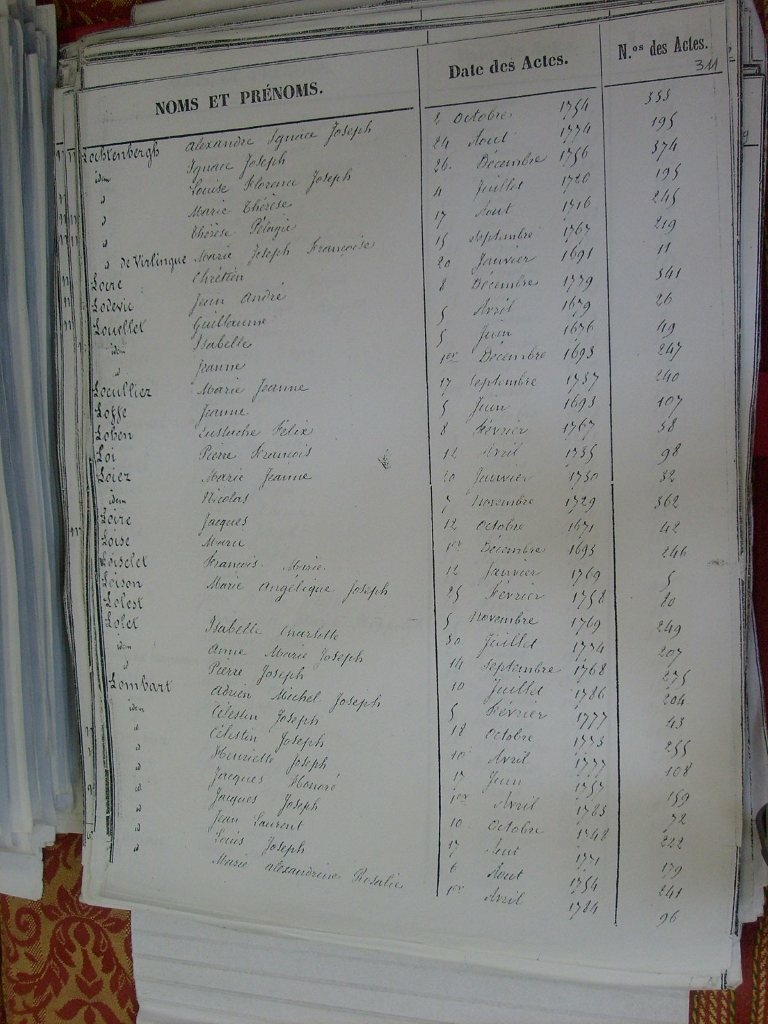 NOMS ET PRÉNOMS. Date des Actes. N.os des Actes.
311
Lochtenbergh Alexandre Ignace Joseph 2 Octobre 1754 333
idem Ignace Joseph 24 Aout 1774 195
d Louise Florence Joseph 26 Décembre 1756 374
d Marie Thérèse 4 Juillet 1720 195
d Thérèse Pélagie 17 Aout 1716 245
d de Virlinque Marie Joseph Françoise 15 Septembre 1767 219
Locre Chrétien 20 Janvier 1691 11
Lodevic Jean André 8 Décembre 1779 341
Louellet Guillaume 5 Avril 1679 26
idem Isabelle 5 Juin 1676 49
d Jeanne 1er Décembre 1693 247
Loeulliez Marie Jeanne 17 Septembre 1737 240
Loffe Jeanne 5 Juin 1693 107
Lohen Eustache Félix 8 Février 1767 38
Loi Pierre François 12 Avril 1735 98
Loiez Marie Jeanne 20 Janvier 1730 32
idem Nicolas 7 Novembre 1729 362
Loire Jacques 12 Octobre 1671 42
Loise Marie 1er Décembre 1693 246
Loiselet François Marie 12 Janvier 1769 5
Loison Marie Angélique Joseph 25 Février 1758 20
Lolest
Lolet Isabelle Charlotte 5 Novembre 1769 249
idem Anne Marie Joseph 30 Juillet 1774 207
d Pierre Joseph 14 Septembre 1768 275
Lombart Adrien Michel Joseph 10 Juillet 1786 204
idem Célestin Joseph 5 Février 1777 43
d Célestin Joseph 18 Octobre 1773 255
d Henriette Joseph 10 Avril 1777 108
d Jacques Honoré 17 Juin 1757 159
d Jacques Joseph 1er Avril 1783 72
d Jean Laurent 10 Octobre 1748 222
d Louis Joseph 17 Aout 1771 179
d Marie Alexandrine Rosalie 6 Aout 1754 241
1er Avril 1784 96